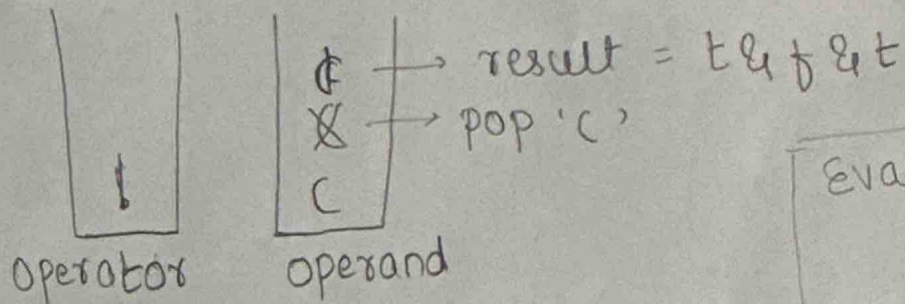 ¢ → result = t & f & t
X → pop '('
! (
operator operand
Eva